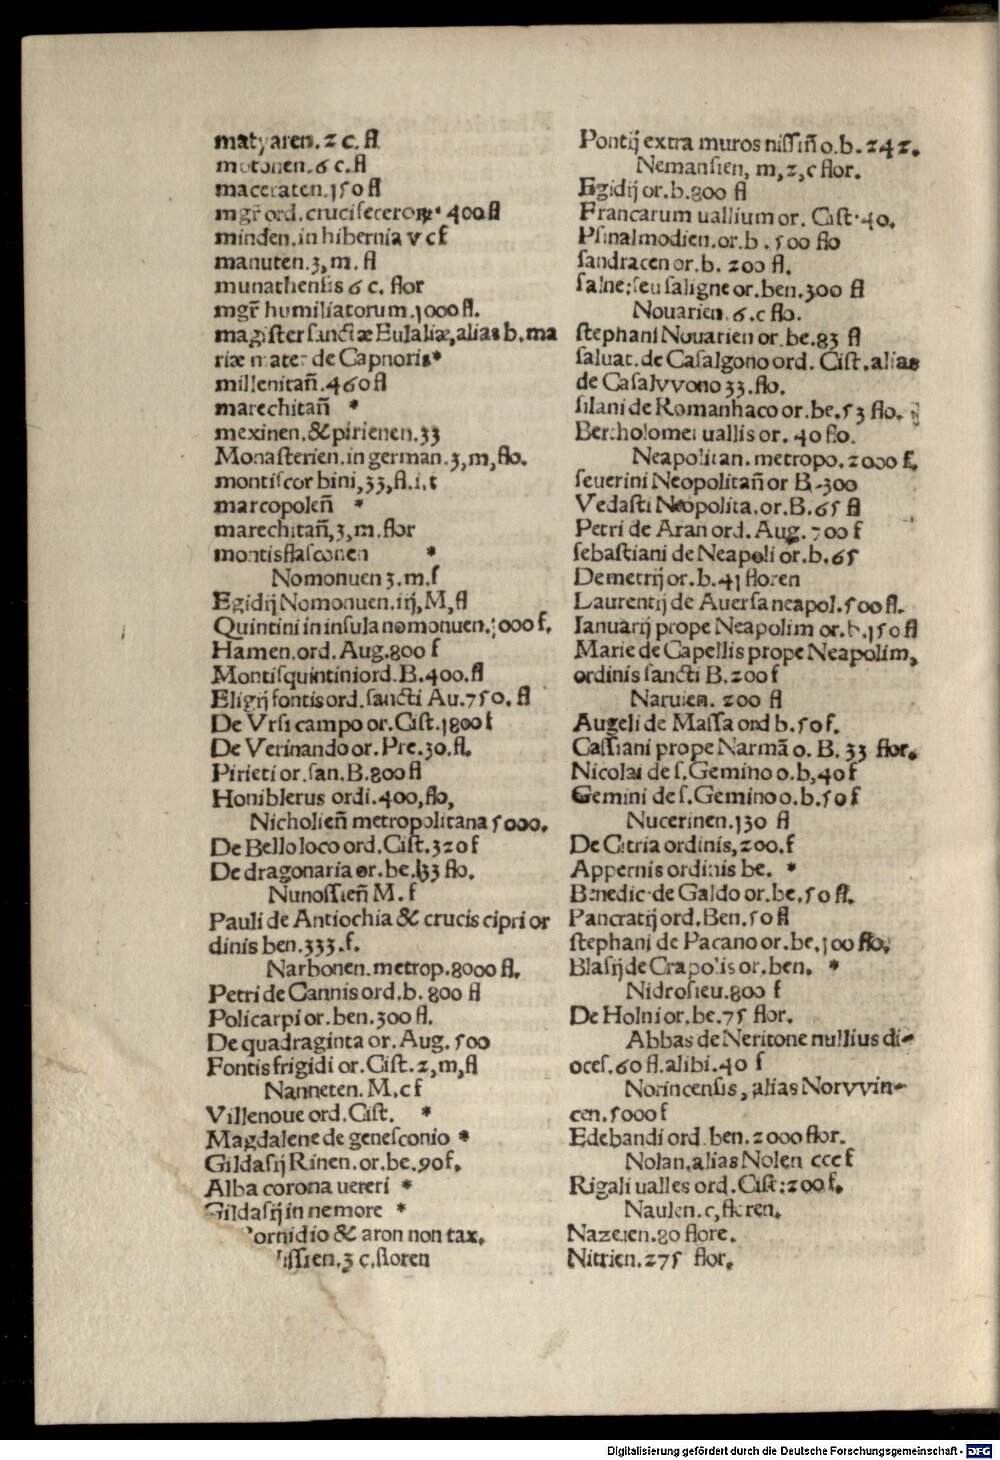 matyaren.2 c.fl
motonen.6 c.fl
maceraten.150 fl
mgr̄ ord.cruciferorꝝ 400 fl
minden.in hibernia v c f
manuten.3,m.fl
munathensis 6 c. flor
mgr̄ humiliatorum.1000 fl.
magister sanctæ Eulaliæ,alias b.ma
riæ mater de Capnoris*
millenitañ.460 fl
marechitañ *
mexinen.&pirienen.33
Monasterien.in german.3,m,flo.
montiscorbini,33,fl.i.t
marcopoleñ *
marechitañ,3,m.flor
montisflasconen *
Nomonuen 3.m.f
Egidij Nomonuen.iij,M,fl
Quintini in insula nomonuen.1000 f.
Hamen.ord.Aug.800 f
Montisquintini ord.B.400.fl
Eligij fontis ord.sancti Au.750.fl
De Vrsi campo or.Cist.1800 f
De Verinando or.Pre.30.fl.
Pirieti or.san.B.800 fl
Honiblerus ordi.400,flo,
Nicholieñ metropolitana 5000.
De Bello loco ord.Cist.320 f
De dragonaria or.be.133 flo.
Nunossieñ M.f
Pauli de Antiochia & crucis cipri or
dinis ben.333.f.
Narbonen.metrop.8000 fl.
Petri de Cannis ord.b. 800 fl
Policarpi or.ben.300 fl.
De quadraginta or.Aug.500
Fontis frigidi or.Cist.2,m,fl
Nanneten.M.c f
Villenoue ord.Cist. *
Magdalene de genesconio *
Gildasij Rinen.or.be.90 f.
Alba corona ueteri *
Gildasij in nemore *
ornidio & aron non tax.
issien.3 c.floren
Pontij extra muros nissiñ o.b.242.
Nemansien, m,2,c flor.
Egidij or.b.800 fl
Francarum uallium or. Cist.40.
Psinalmodien.or.b.500 flo
sandracen or.b. 200 fl.
salne:seu saligne or.ben.300 fl
Nouarien.6.c flo.
stephani Nouarien or.be.83 fl
saluat.de Casalgono ord. Cist.alias
de Casalvvono 33.flo.
silani de Romanhaco or.be.53 flo.
Bertholomei uallis or. 40 flo.
Neapolitan.metropo.2000 f.
seuerini Neopolitañ or B.300
Vedasti Neopolita.or.B.65 fl
Petri de Aran ord.Aug.700 f
sebastiani de Neapoli or.b.65
Demetrij or.b.41 floren
Laurentij de Auersa neapol.500 fl.
Ianuarij prope Neapolim or.b.150 fl
Marie de Capellis prope Neapolim,
ordinis sancti B.200 f
Naruien. 200 fl
Augeli de Massa ord b.50 f.
Cassiani prope Narmã o. B. 33 flor.
Nicolai de s.Gemino o.b,40 f
Gemini de s.Gemino o.b.50 f
Nucerinen.130 fl
De Citria ordinis,200.f
Appernis ordinis be. *
Benedic.de Galdo or.be.50 fl.
Pancratij ord.Ben.50 fl
stephani de Pacano or.be.100 flo.
Blasij de Crapolis or.ben. *
Nidrosieu.800 f
De Holni or.be.75 flor.
Abbas de Neritone nullius di-
oces.60 fl.alibi.40 f
Norincensis, alias Norvvin-
cen.5000 f
Edebandi ord.ben.2000 flor.
Nolan.alias Nolen ccc f
Rigali ualles ord.Cist:200 f.
Naulen.c,floren.
Nazeien.80 flore.
Nitrien.275 flor.
Digitalisierung gefördert durch die Deutsche Forschungsgemeinschaft - DFG